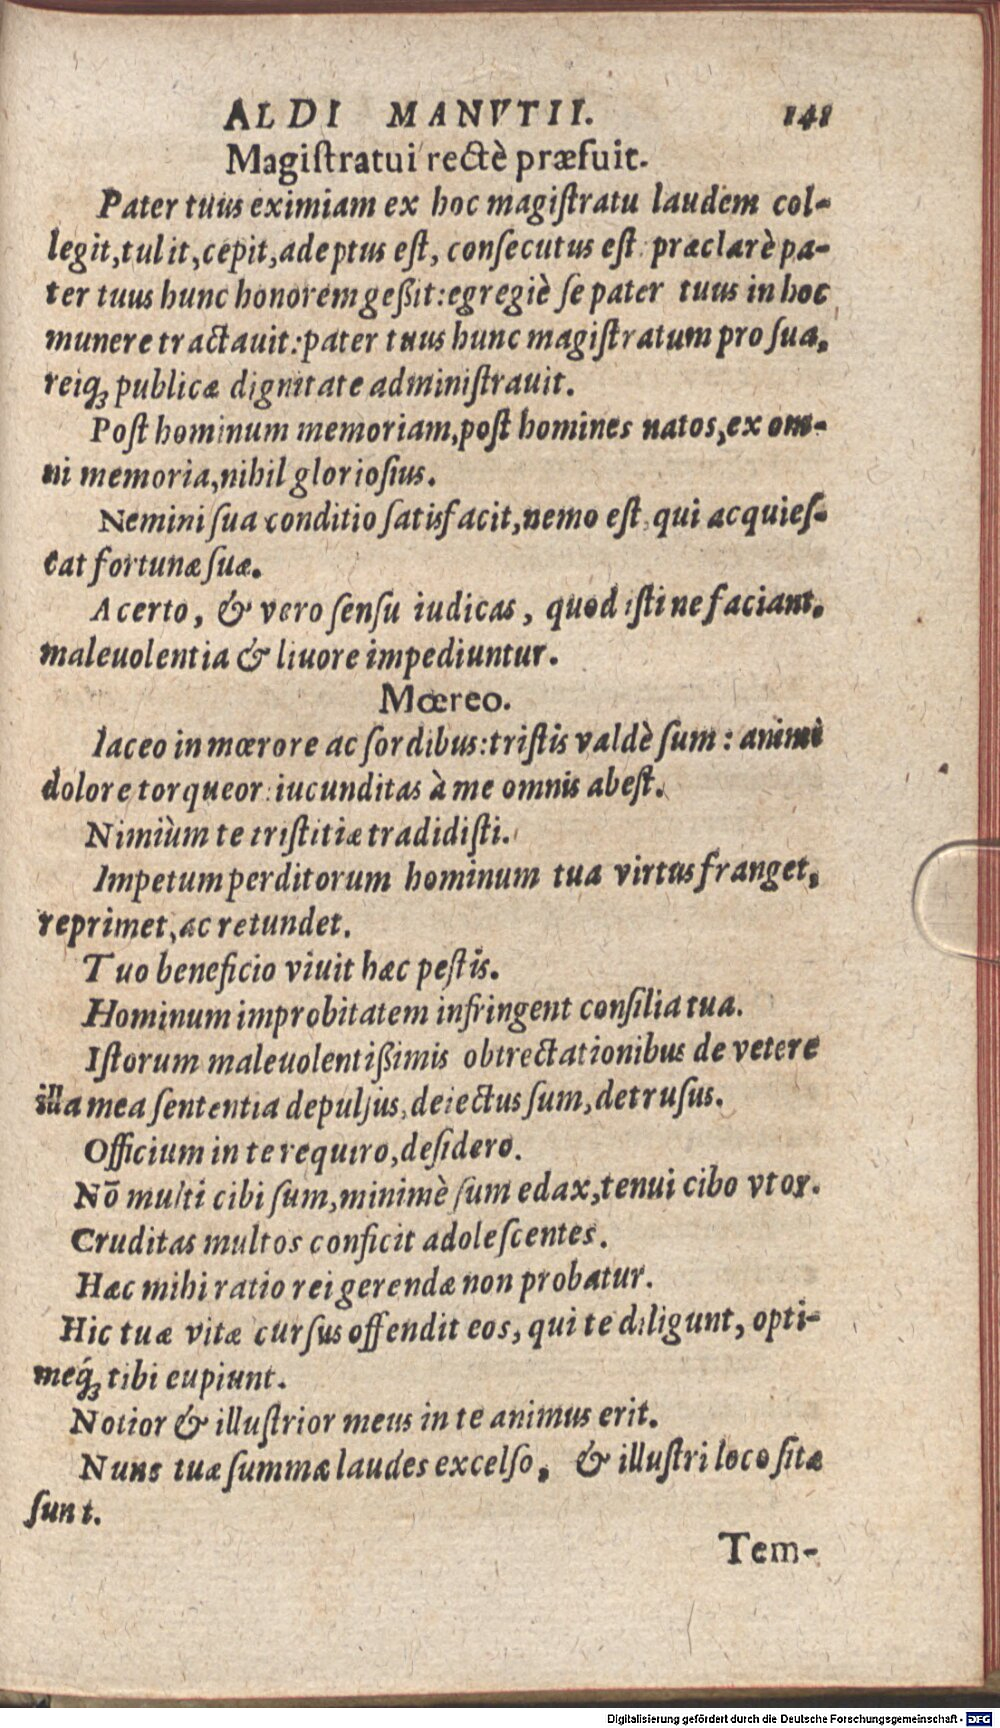 ALDI MANVTII. 141
Magiſtratui rectè præfuit.
Pater tuus eximiam ex hoc magiſtratu laudem col-
legit, tulit, cepit, adeptus eſt, conſecutus eſt: præclarè pa-
ter tuus hunc honorem geßit: egregiè ſe pater tuus in hoc
munere tractauit: pater tuus hunc magiſtratum pro ſua,
reiq́; publicæ dignitate adminiſtrauit.
Poſt hominum memoriam, poſt homines natos, ex om-
ni memoria, nihil glorioſius.
Nemini ſua conditio ſatisfacit, nemo eſt, qui acquieſ-
cat fortunæ ſuæ.
A certo, & vero ſenſu iudicas, quod iſti ne faciant,
maleuolentia & liuore impediuntur.
Mœreo.
Iaceo in mœrore ac ſordibus: triſtis valdè ſum: animi
dolore torqueor: iucunditas à me omnis abeſt.
Nimiùm te triſtitiæ tradidiſti.
Impetum perditorum hominum tua virtus franget,
reprimet, ac retundet.
Tuo beneficio viuit hæc peſtis.
Hominum improbitatem infringent conſilia tua.
Iſtorum maleuolentißimis obtrectationibus de vetere
illa mea ſententia depulſus, deiectus ſum, detruſus.
Officium in te requiro, deſidero.
Nō multi cibi ſum, minimè ſum edax, tenui cibo vtor.
Cruditas multos conficit adoleſcentes.
Hæc mihi ratio rei gerendæ non probatur.
Hic tuæ vitæ curſus offendit eos, qui te diligunt, opti-
meq́; tibi cupiunt.
Notior & illuſtrior meus in te animus erit.
Nunc tuæ ſummæ laudes excelſo, & illuſtri loco ſitæ
ſunt.
Tem-
Digitalisierung gefördert durch die Deutsche Forschungsgemeinschaft - DFG